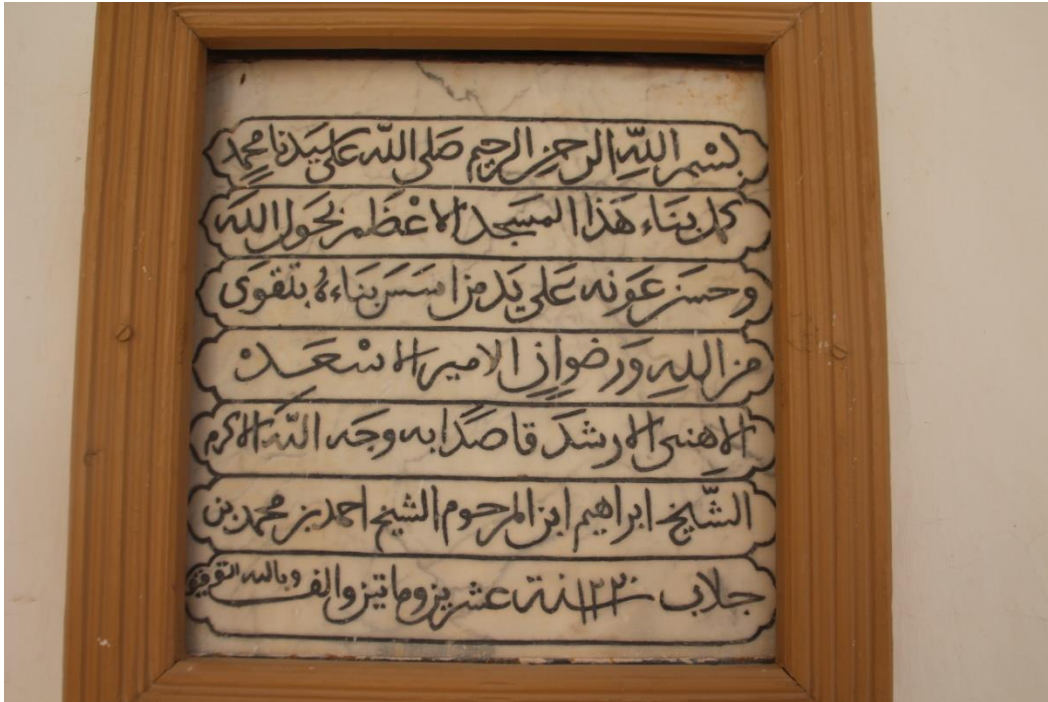 بسْم اللهِ الرحمن الرحيم صَلى الله على سَيدنا محمد
كمل بناء هَذا المسَجد الاعْظم بحَول الله
وحسن عَونه عَلى يَد من اسَسَ بنَاءهُ بتقوَى
من اللهِ وَرضوانٍ الامير الاسْعَدْ
الاهنى الارشدَ قاصدًا به وجَه اللَّه الاكرم
الشَّيخ ابراهيم ابن المرحوم الشيخ احمد بن محمد بن
جلاب سنة ١٢٢٠ عشرين وماتين والف وبالله التوفيق